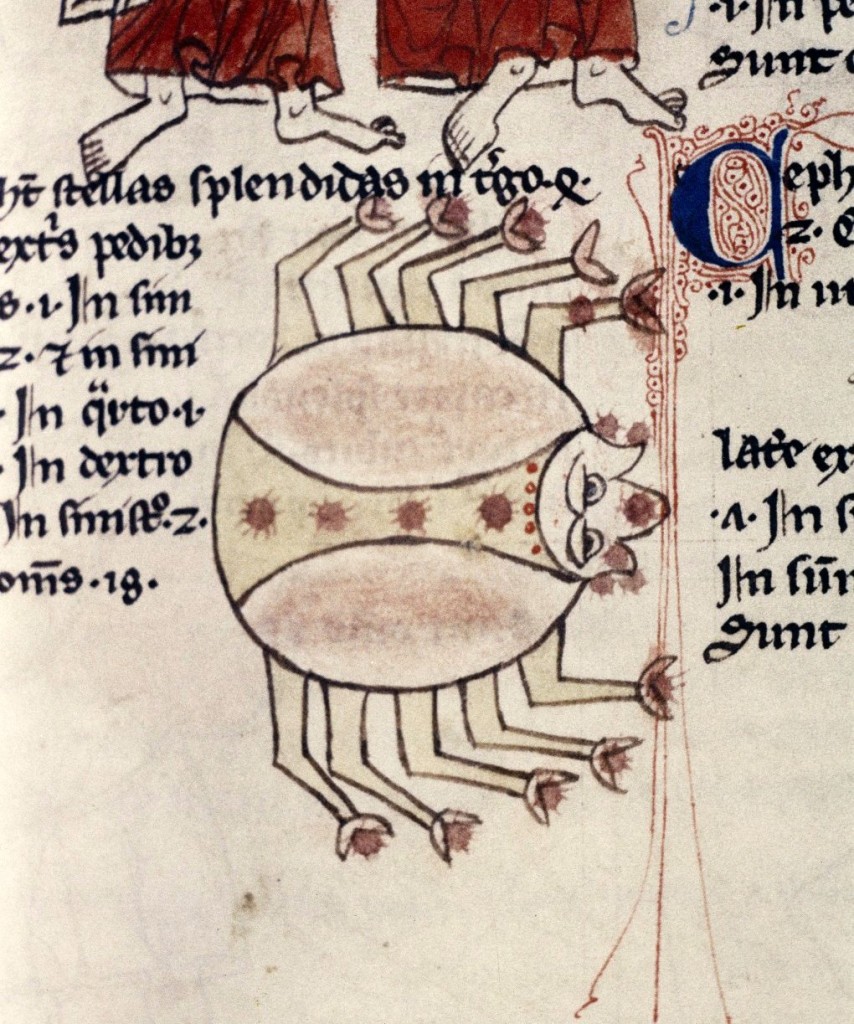 ht̄ stellas splendidas in t͛go. ⁊.
ext͛s pedibꝫ
s .1. In sini
2. ⁊ in sini
. In q̈rto .1.
. In dextro
In sinistᵒ. 2.
om̄s . 18 .
.1. In pe
Sunt
Ceph
2.
.1. In
lat̾e ex
.A. In s
In sūm
Sunt